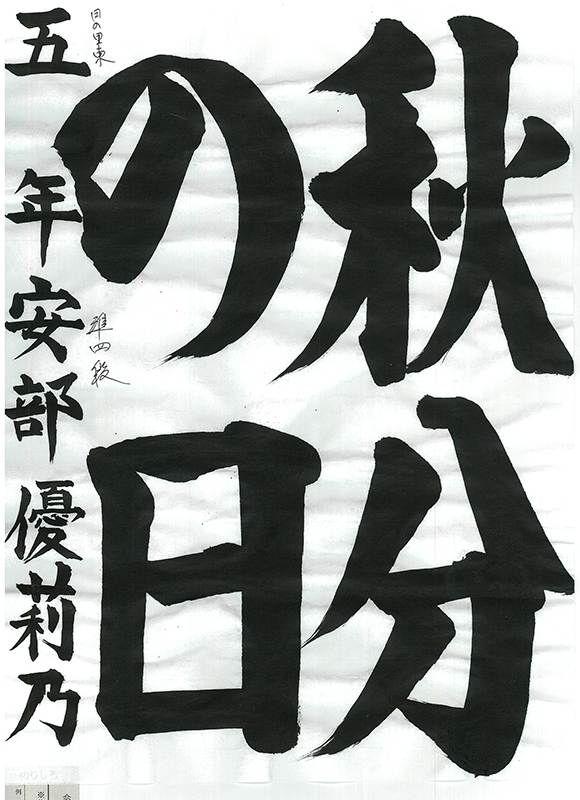 秋分
の日
目の里東
準四段
五年安部優莉乃
のりしろ
例
※